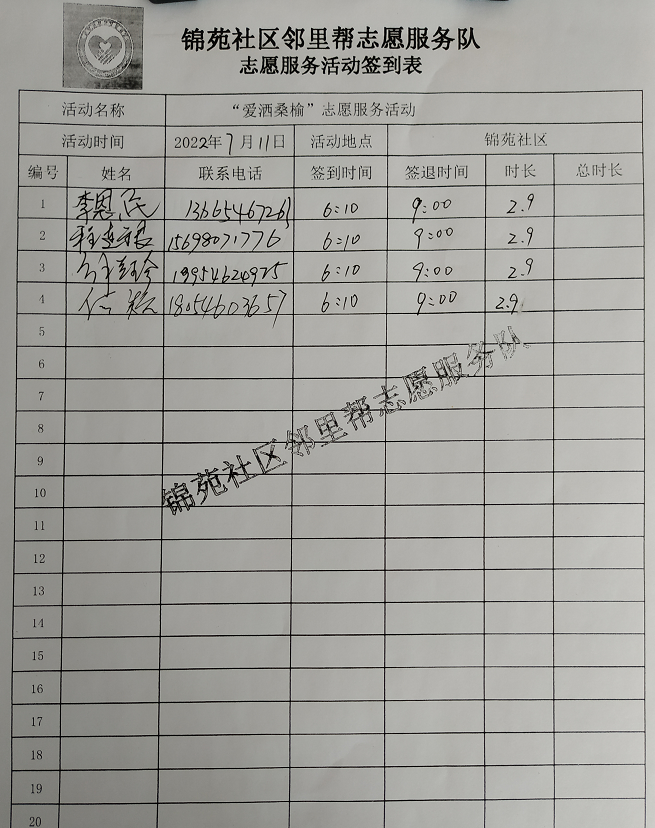 锦苑社区邻里帮志愿服务队
志愿服务活动签到表
活动名称 “爱洒桑榆”志愿服务活动
活动时间 2022年7月11日 活动地点 锦苑社区
编号 姓名 联系电话 签到时间 签退时间 时长 总时长
1 李恩民 13665467261 6:10 9:00 2.9
2 15698071776 6:10 9:00 2.9
3 6:10 9:00 2.9
4 18054603657 6:10 9:00 2.9
5
6
7
8
9
10
11
12
13
14
15
16
17
18
19
20
锦苑社区邻里帮志愿服务队